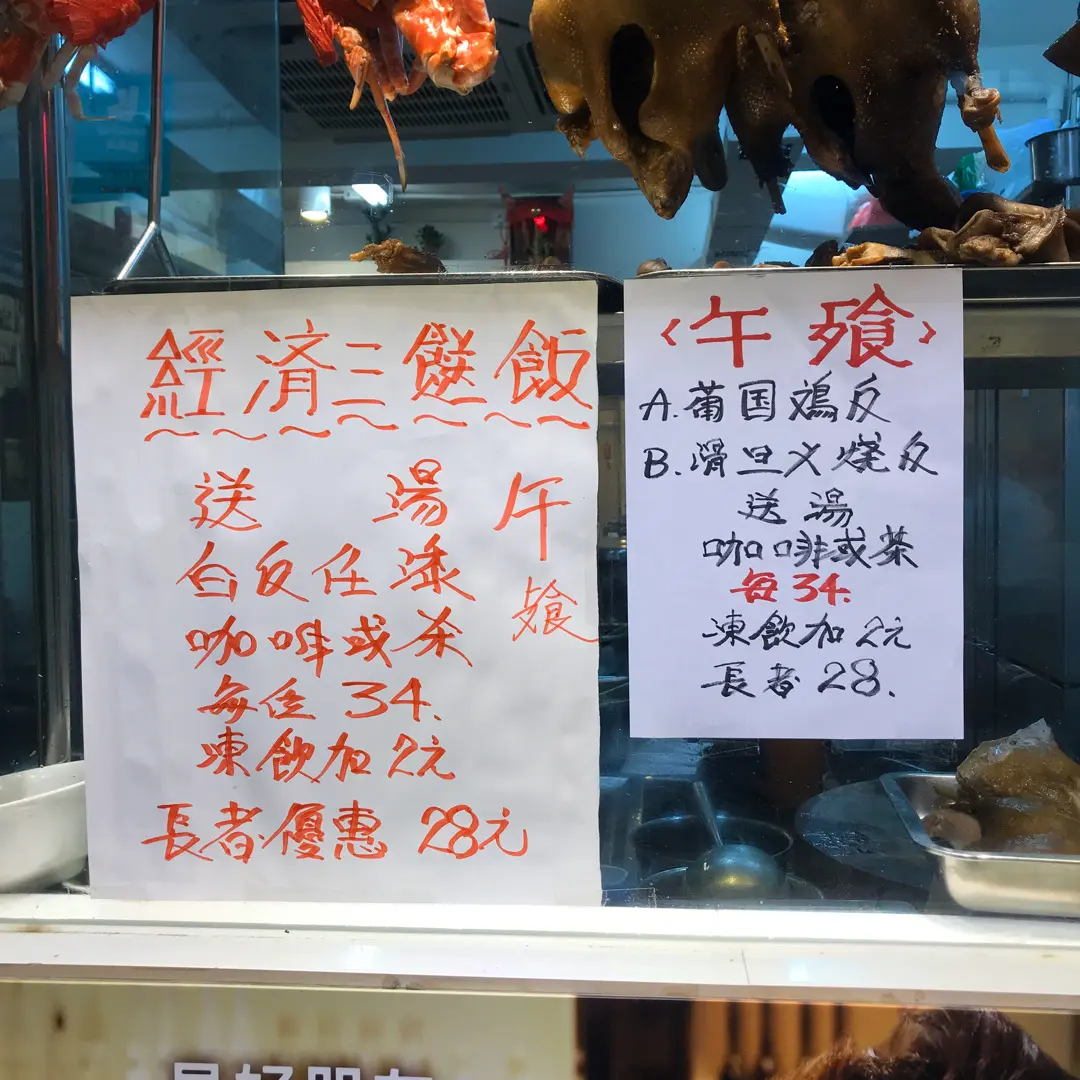 經濟三餸飯
送 湯
白反任添
咖啡或茶
每位 34.
凍飲加 2元
長者優惠 28元
午餐
〈午餐〉
A. 葡国鸡反
B. 滑旦义燒反
送湯
咖啡或茶
每 34.
凍飲加 2元
長者 28.